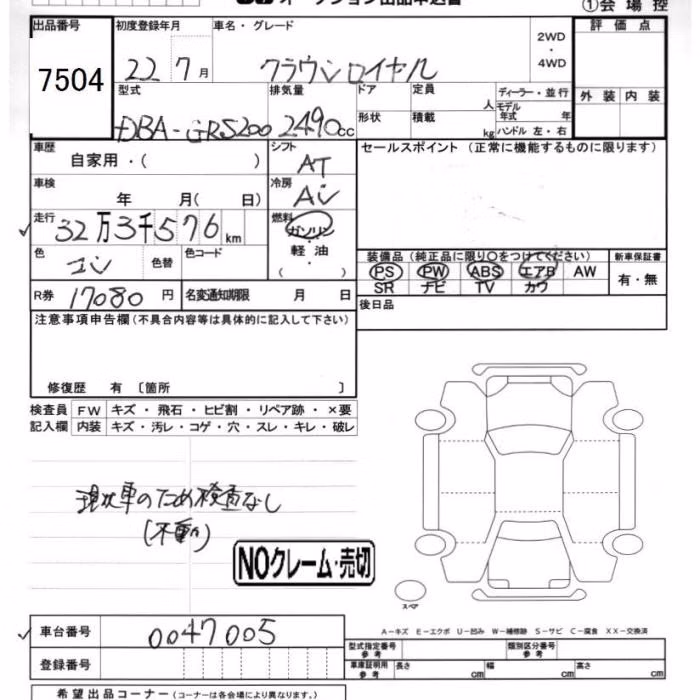 オークション出品申込書 ①会場控
出品番号 初度登録年月 車名・グレード 評価点
7504 22 7月 クラウンロイヤル 2WD・4WD
型式 排気量 ドア 定員 人 ディーラー・並行 外装 内装
DBA-GRS200 2490cc 形状 積載 kg モデル年式 年
ハンドル 左・右
車歴 自家用・( ) シフト AT セールスポイント (正常に機能するものに限ります)
車検 年 月( 日) 冷房
走行 32万3千576km 燃料 ガソリン・軽油・( )
色 色替 色コード 装備品 (純正品に限り○をつけてください) 新車保証書
PS PW ABS エアB AW 有・無
SR ナビ TV カワ
R券 17080円 名変通知期限 月 日 後日品
注意事項申告欄(不具合内容等は具体的に記入して下さい)
修復歴 有 〔箇所 〕
検査員 FW キズ・飛石・ヒビ割・リペア跡・×要
記入欄 内装 キズ・汚レ・コゲ・穴・スレ・キレ・破レ
現状車のため検査なし
(不動)
NOクレーム・売切
スペア
A-キズ E-エクボ U-凹み W-補修跡 S-サビ C-腐食 XX-交換済
車台番号 0047005
型式指定番号 参考 類別区分番号 参考
登録番号 車庫証明用 参考 長さ cm 幅 cm 高さ cm
希望出品コーナー (コーナーは各会場により異なります。)